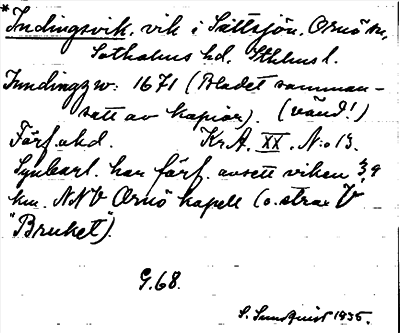 * Indingsvik, vik i Sättsjön, Ornö sn,
Sotholms hd, Sthlms l.
Inndingzw: 1671 (Bladet samman-
satt av kopior). (vänd!)
Förf. okd. Kr.A. XX. N:o 13.
Synbarl. har förf. avsett viken 3,9
km. NNV Ornö kapell (o. strax V
"Bruket").
G.68.
S. Sundquist 1935.